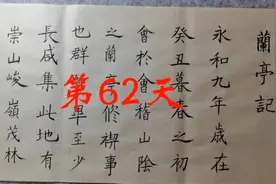 蘭亭記
永和九年歲在
癸丑暮春之初
會於會稽山陰
之蘭亭修禊事
也群賢畢至少
長咸集此地有
崇山峻嶺茂林
第62天